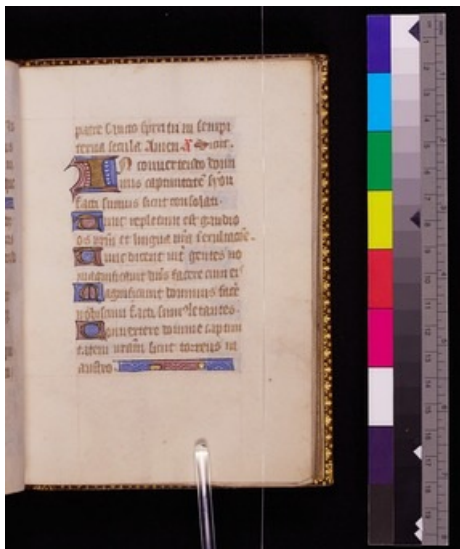 patre Sancto spiritu in sempi
terna secula Amen
In convertendo domi
nus captivitatē syon
facti sumus sicut consolati.
Tunc repletum est gaudio
os nrm et lingua nra exultacōe.
Tunc dicent int gentes
magnificavit dns facere cum eis
Magnificavit dominus facē
nobiscum facti sumus letātes.
Convertere domine captivi
tatem nram sicut torrens in
austro